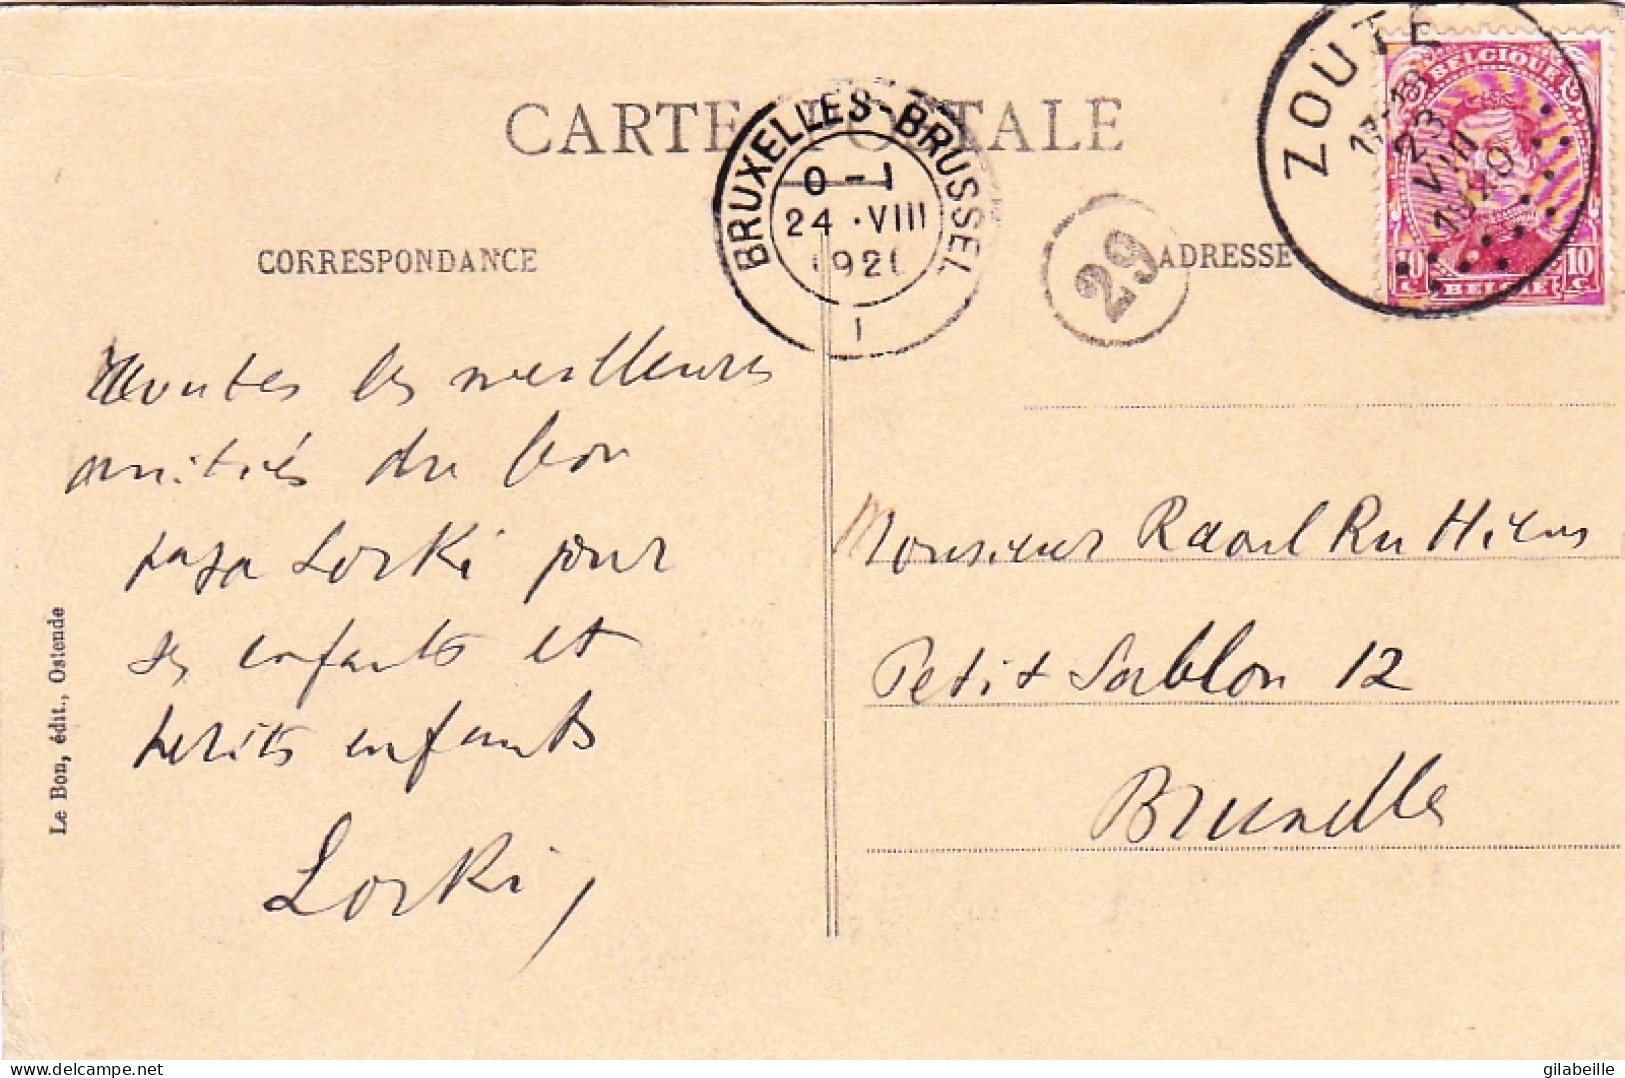 CARTE POSTALE
BRUXELLES-BRUSSEL
0-1
24 · VIII
192
1
ZOUTE
17-18
23
VIII
BELGIQUE
10 c
10 c
BELGIË
29
CORRESPONDANCE
ADRESSE
Toutes les meilleures
amitiés du bon
papa Lorki pour
ses enfants et
petits enfants
Lorki
Monsieur Raoul Ruttiens
Petit Sablon 12
Bruxelles
Le Bon, édit., Ostende
delcampe.net
gilabeille